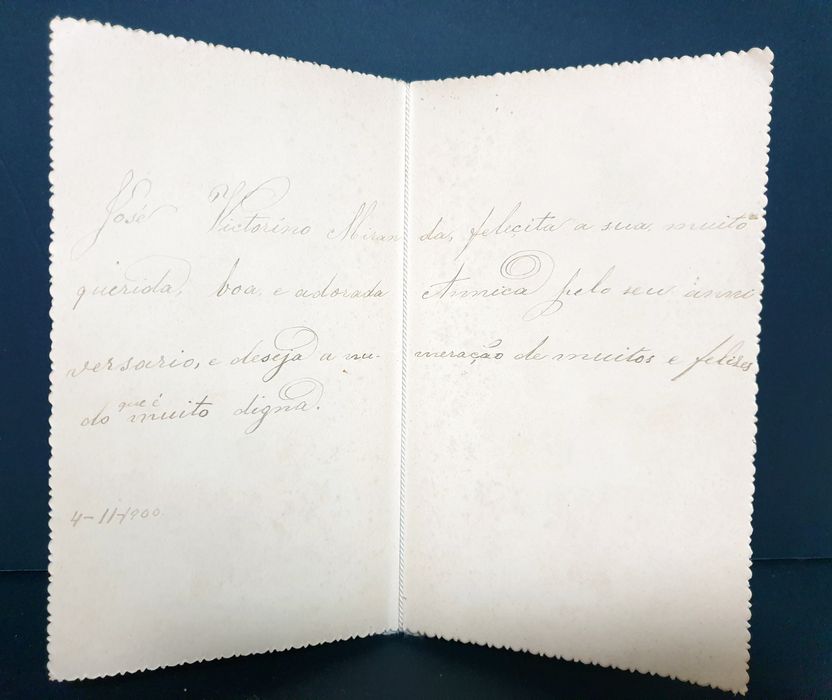 José Victorino Miranda, feleçita a sua, muito
querida, boa, e adorada Annica pelo seu anni
versario, e deseja a nu- meração de muitos e felizes
do que é muito digna.
4-11-1900